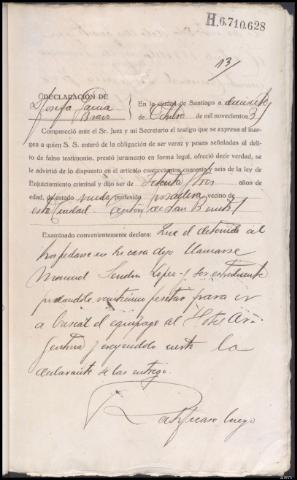 H.6.710.628
13/
DECLARACIÓN DE
Josefa García
En la ciudad de Santiago a
Octubre de mil novecientos
Compareció ante el Sr. Juez y mi Secretario el testigo que se expresa al margen
a quien S. S. enteró de la obligación de ser veraz y penas señaladas al delito
de falso testimonio, prestó juramento en forma legal, ofreció decir verdad, se
le advirtió de lo dispuesto en el artículo cuatrocientos cuarenta y seis de la ley de
Enjuiciamiento criminal y dijo ser de setenta y tres años de
edad, de estado viuda profesión posadera vecino de
esta Ciudad de San Benito
Examinado convenientemente declara: Que el detenido al
hospedarse en su casa dijo llamarse
Manuel Sendón López y ser estudiante
pidiendole pesetas para ir
a buscar el equipaje al Hotel Ar-
gentina y creyendolo cierto la
declarante se las entregó.
Ratificase luego